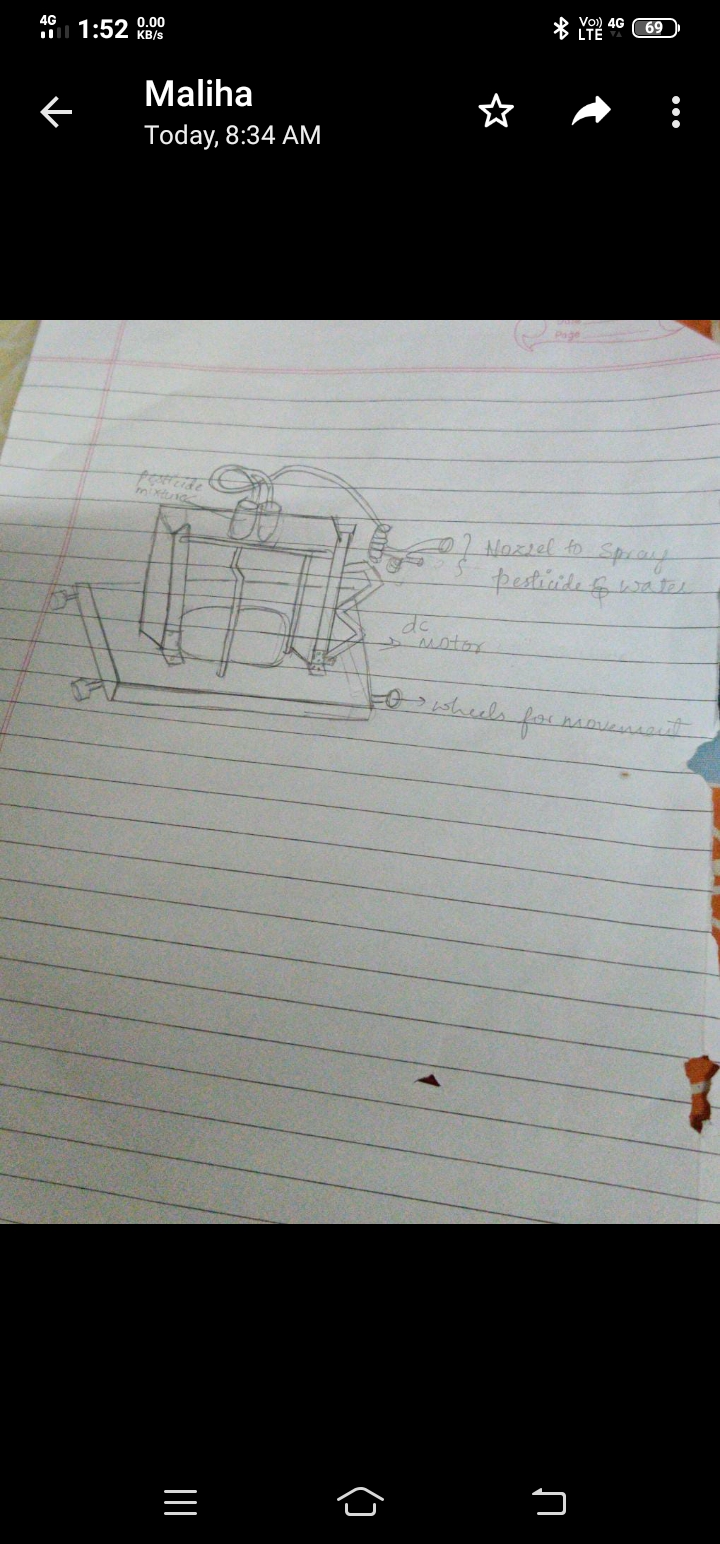 4G
1:52
0.00
KB/s
Vo))
LTE
4G
69
Maliha
Today, 8:34 AM
Page
pesticide
mixture
Nozzel to spray
pesticide & water
dc
motor
wheels for movement